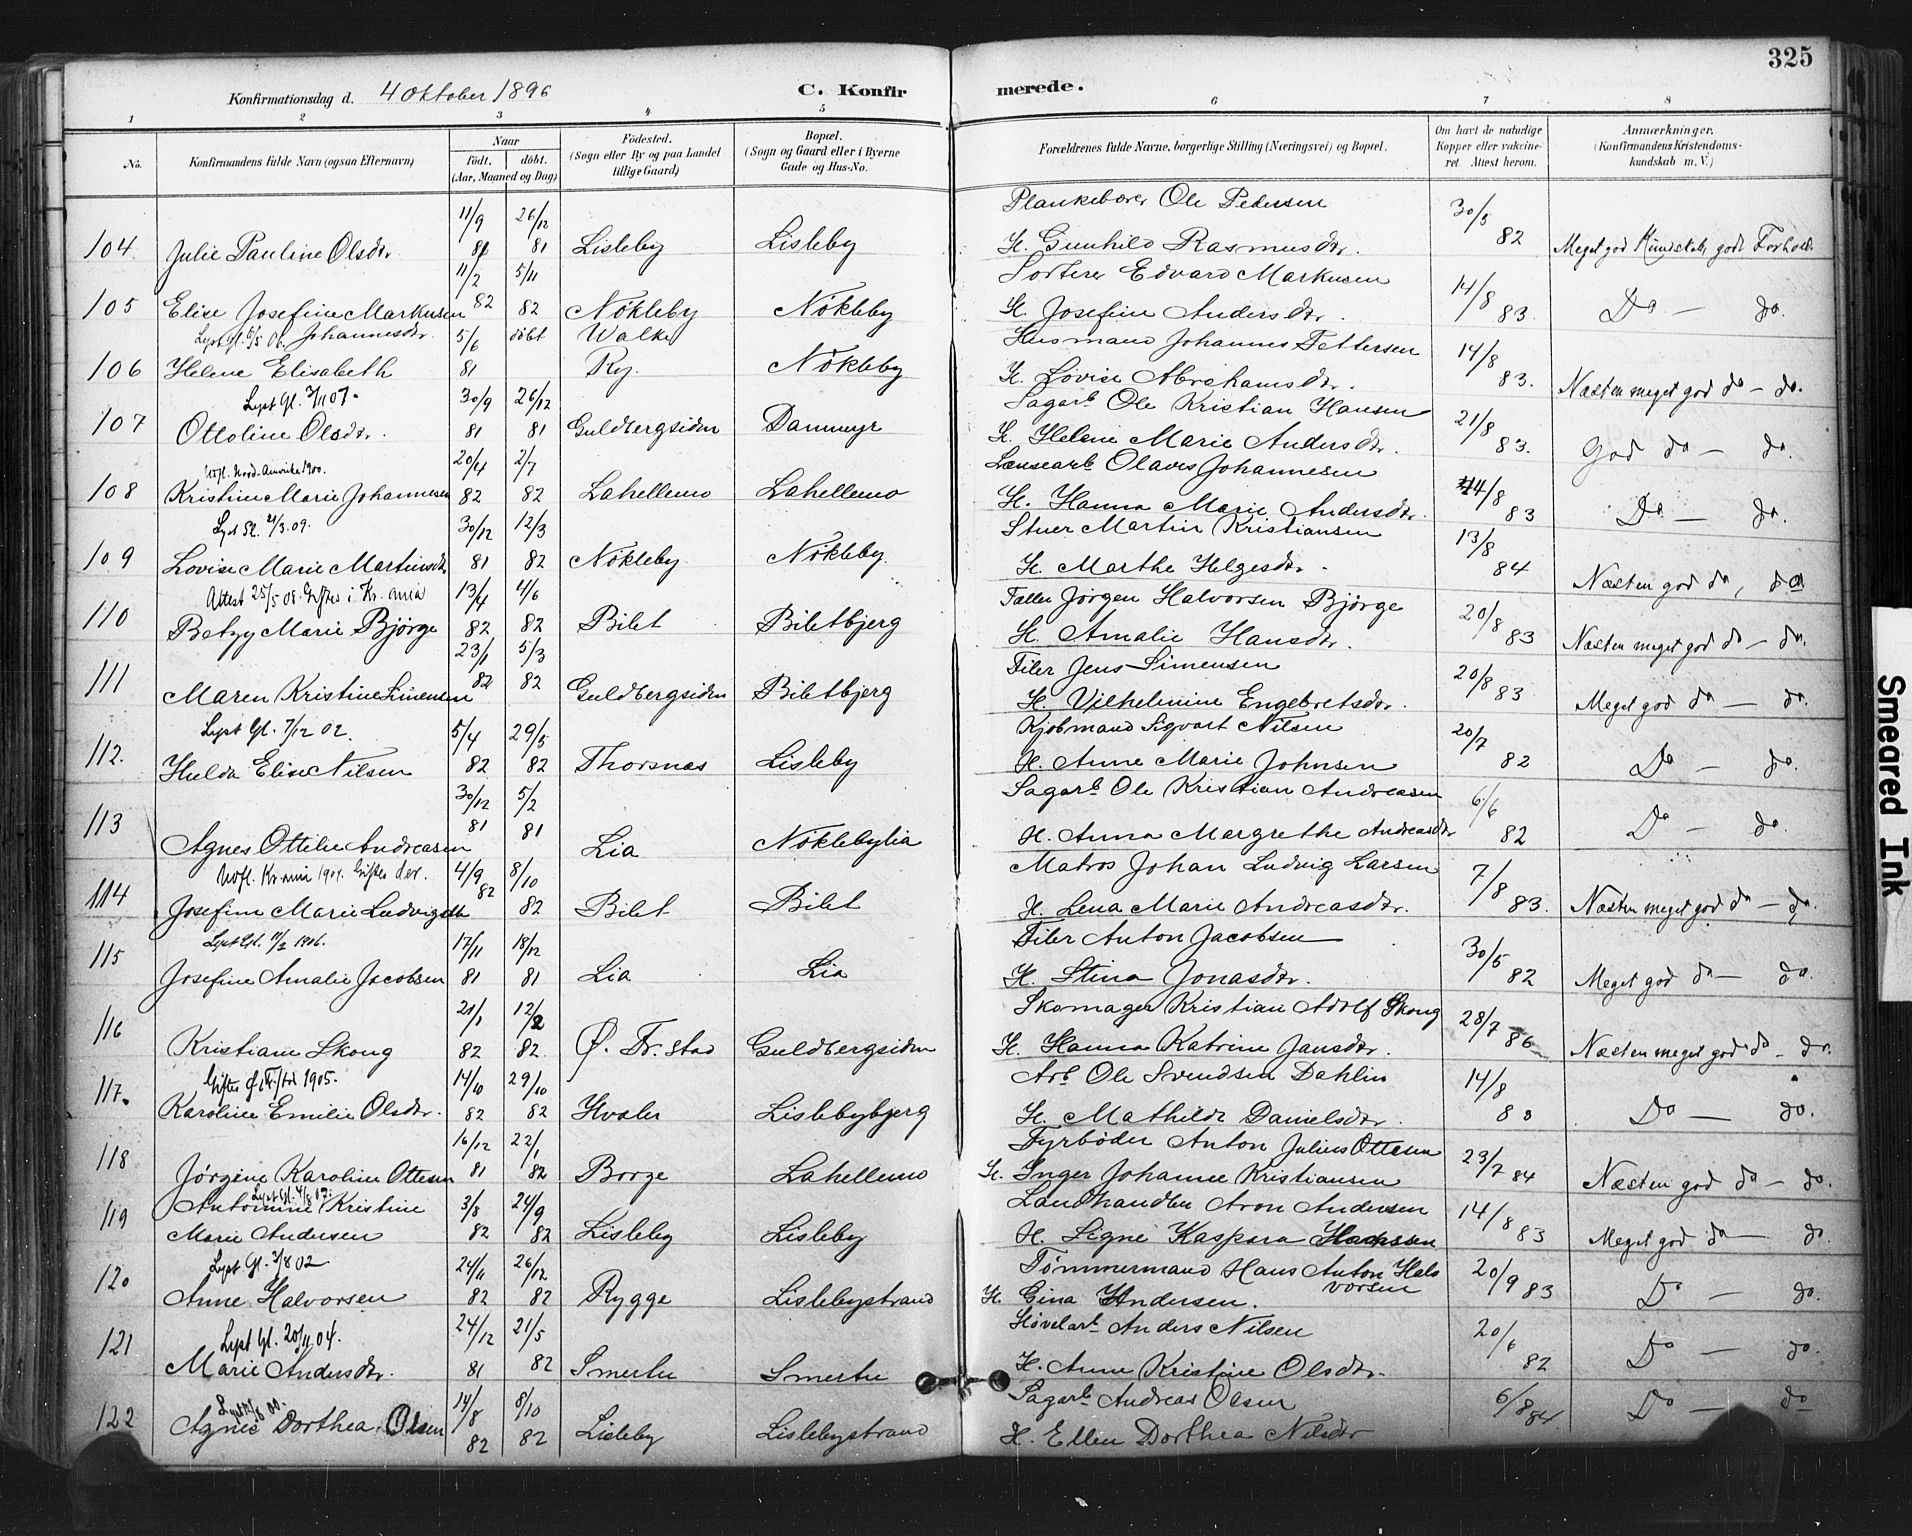 325
Konfirmationsdag d. 4 Oktober 1896 C. Konfirmerede.
1 2 3 4 5 6 7 8
No. Konfirmandens fulde Navn (ogsaa Efternavn) Naar födt. döbt. (Aar, Maaned og Dag) Födested. (Sogn eller By og paa Landet tillige Gaard) Bopæl. (Sogn og Gaard eller i Byerne Gade og Hus-No. Forældrenes fulde Navne, borgerlige Stilling (Næringsvei) og Bopæl. Om havt de naturlige Kopper eller vakcineret. Attest herom. Anmærkninger. (Konfirmandens Kristendomskundskab m. V.)
11/9 26/12 Plankebærer Ole Pedersen 30/5
104 Julie Pauline Olsdr. 81 81 Lisleby Lisleby H. Gunhild Rasmusdr. 82 Meget god Kundskab, godt Forhold.
11/2 5/11 Sorterer Edvard Markusen 14/8
105 Elise Josefine Markusen 82 82 Nökleby Nökleby H. Josefine Andersdr. 83. Do — do.
Lyst Gl. 6/5 06. Johannesdr. 5/6 döbt Walke Husmand Johannes Pettersen 14/8
106 Helene Elisabeth 81 Ry. Nökleby H. Lovise Abrahamsdr. 83. Næsten meget god do — do.
Lyst Gl. 3/11 07. 30/9 26/12 Sagarb. Ole Kristian Hansen 21/8
107 Ottoline Olsdr. 81 81 Guldbergsiden Dammyr H. Helene Marie Andersdr. 83. God do — do.
Utfl. Nord-Amerika 1900. 20/4 2/7 Lænsearb. Olaves Johannesen 14/8
108 Kristine Marie Johannesen 82 82 Lahellemo Lahellemo H. Hanna Marie Andersdr. 83 Do — do.
Lyst Gl. 21/3.09. 30/12 12/3 Stuer Martin Kristiansen 13/8
109 Lovise Marie Martinsdr 81 82 Nökleby Nökleby. H. Marthe Helgesdr. 84 Næsten god do, do
Attest 25/5 08. Giftes i Kr.ania 13/4 4/6 Tæller Jörgen Halvorsen Björge 20/8
110 Betzy Marie Björge 82 82 Bilet Biletbjerg H. Amalie Hansdr. 83 Næsten meget god do — do.
23/1 5/3 Filer Jens Simensen 20/8
111 Maren Kristine Simensen 82 82 Guldbergsiden Biletbjerg H. Vilhelmine Engebretsdr. 83 Meget god do — do.
Lyst Gl. 7/12 02. 5/4 29/5 Kjöbmand Sigvart Nilsen 20/7
112. Hulda Elise Nilsen 82 82 Thorsnæs Lisleby H. Anne Marie Johnsen 82 Do — do.
30/12 5/2 Sagarb. Ole Kristian Andreasen 6/6
113 Agnes Ottilie Andreasen 81 81 Lia Nöklebylia H. Anna Margrethe Andreasdr 82 Do — do.
Utfl. Kr.ania 1901. Giftes der. 4/9 8/10 Matros Johan Ludvig Larsen 7/8
114 Josefine Marie Ludvigsdr 82 82 Bilet Bilet H. Lena Marie Andreasdr. 83. Næsten meget god do — do.
Lyst Gl. 11/2 1906. 17/11 18/12 Filer Anton Jacobsen 30/5
115 Josefine Amalie Jacobsen 81 81 Lia Lia H. Stina Jonasdr. 82 Meget god do — do.
21/1 12/2 Skomager Kristian Adolf Skoug 28/7
116 Kristiane Skoug 82 82. Ø. Fr.stad Guldbergsiden H. Hanna Katrine Jansdr. 86 Næsten meget god do — do.
Giftes Ø. Fr/stad 1905. 14/10 29/10 Arb. Ole Svendsen Dahlin 14/8
117. Karoline Emilie Olsdr. 82 82 Hvaler Lislebybjerg H. Mathilde Danielsdr. 83 Do — do.
16/12 22/1 Fyrböder Anton Julius Ottesen 23/7
118 Jörgine Karoline Ottesen 81 82 Borge Lahellemo H. Inger Johanne Kristiansen 84 Næsten god do — do.
Lyst Gl. 4/8 07. Antonine Kristine 3/8 24/9 Landhandler Aron Andersen 14/8
119 Marie Andersen 82 82 Lisleby Lisleby H. Signe Kaspara Hansen 83 Meget god do — do.
Lyst Gl. 3/8 02 24/11 26/12 Tömmermand Hans Anton Halvorsen 20/9
120 Anne Halvorsen 82 82 Rygge Lislebystrand H. Gina Andersen. 83 Do — do.
Lyst Gl. 20/11 04. 24/12 21/5 Hövelarb. Anders Nilsen 20/6
121 Marie Andersdr. 81 82 Smertu Smertu H. Anne Kristine Olsdr. 82 Do — do.
14/8 8/10 Sagarb. Andreas Olsen 6/8 84
122 Agnes Dorthea Olsen 82 82 Lisleby Lislebystrand H. Ellen Dorthea Nilsdr Do — do
Smeared Ink